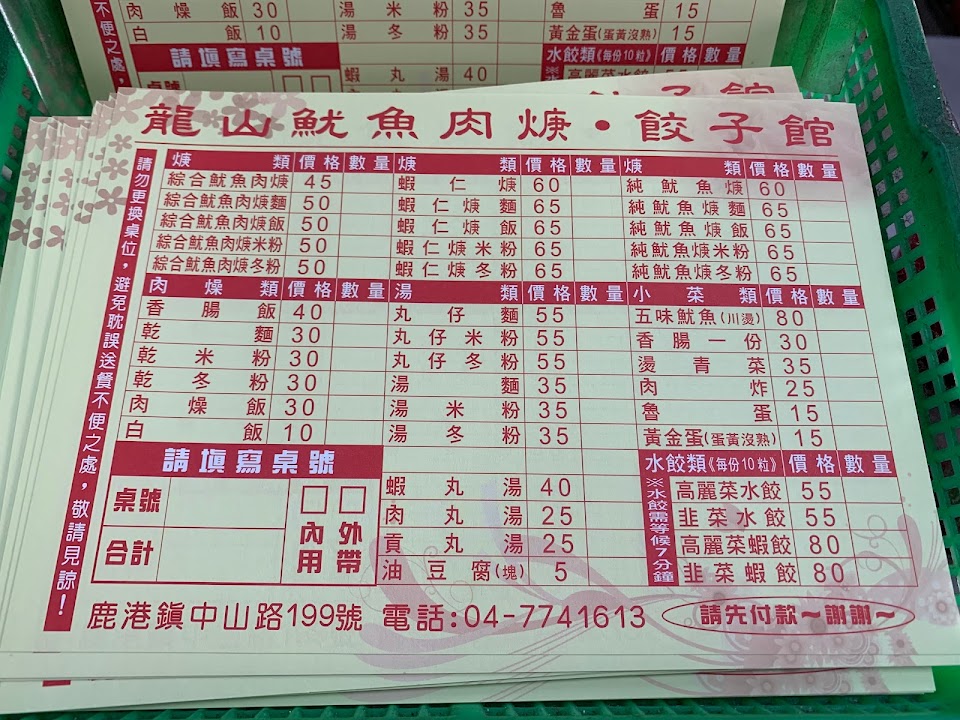 肉燥飯 30 湯米粉 35 魯蛋 15
白飯 10 湯冬粉 35 黃金蛋(蛋黃沒熟) 15
請填寫桌號 水餃類《每份10粒》 價格 數量
桌號 蝦丸湯 40 高麗菜水餃
餃子館
龍山魷魚肉焿・餃子館
請勿更換桌位，避免耽誤送餐不便之處，敬請見諒！
焿類 價格 數量 焿類 價格 數量 焿類 價格 數量
綜合魷魚肉焿 45 蝦仁焿 60 純魷魚焿 60
綜合魷魚肉焿麵 50 蝦仁焿麵 65 純魷魚焿麵 65
綜合魷魚肉焿飯 50 蝦仁焿飯 65 純魷魚焿飯 65
綜合魷魚肉焿米粉 50 蝦仁焿米粉 65 純魷魚焿米粉 65
綜合魷魚肉焿冬粉 50 蝦仁焿冬粉 65 純魷魚焿冬粉 65
肉燥類 價格 數量 湯類 價格 數量 小菜類 價格 數量
香腸飯 40 丸仔麵 55 五味魷魚(川燙) 80
乾麵 30 丸仔米粉 55 香腸一份 30
乾米粉 30 丸仔冬粉 55 燙青菜 35
乾冬粉 30 湯麵 35 肉炸 25
肉燥飯 30 湯米粉 35 魯蛋 15
白飯 10 湯冬粉 35 黃金蛋(蛋黃沒熟) 15
請填寫桌號 水餃類《每份10粒》 價格 數量
※水餃需等候7分鐘
桌號 蝦丸湯 40 高麗菜水餃 55
肉丸湯 25 韭菜水餃 55
合計 內用 外帶 貢丸湯 25 高麗菜蝦餃 80
油豆腐(塊) 5 韭菜蝦餃 80
鹿港鎮中山路199號 電話:04-7741613 請先付款～謝謝～